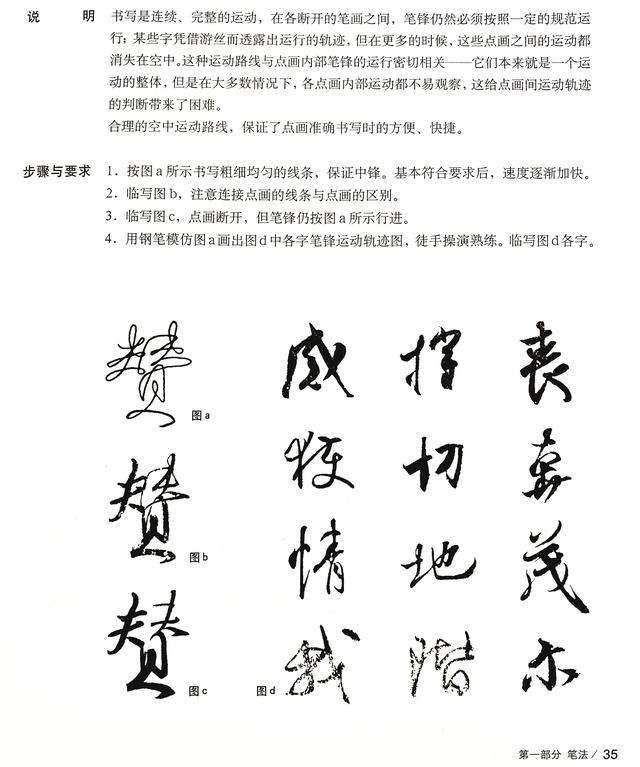 说 明 书写是连续、完整的运动，在各断开的笔画之间，笔锋仍然必须按照一定的规范运
行；某些字凭借游丝而透露出运行的轨迹，但在更多的时候，这些点画之间的运动都
消失在空中。这种运动路线与点画内部笔锋的运行密切相关——它们本来就是一个运
动的整体，但是在大多数情况下，各点画内部运动都不易观察，这给点画间运动轨迹
的判断带来了困难。
合理的空中运动路线，保证了点画准确书写时的方便、快捷。
步骤与要求 1．按图a所示书写粗细均匀的线条，保证中锋。基本符合要求后，速度逐渐加快。
2．临写图b，注意连接点画的线条与点画的区别。
3．临写图c，点画断开，但笔锋仍按图a所示行进。
4．用钢笔模仿图a画出图d中各字笔锋运动轨迹图，徒手操演熟练。临写图d各字。
赞
图a
赞
图b
赞
图c
感 撑 丧
切
情 地 茂
我 階 尔
图d
第一部分 笔法 / 35